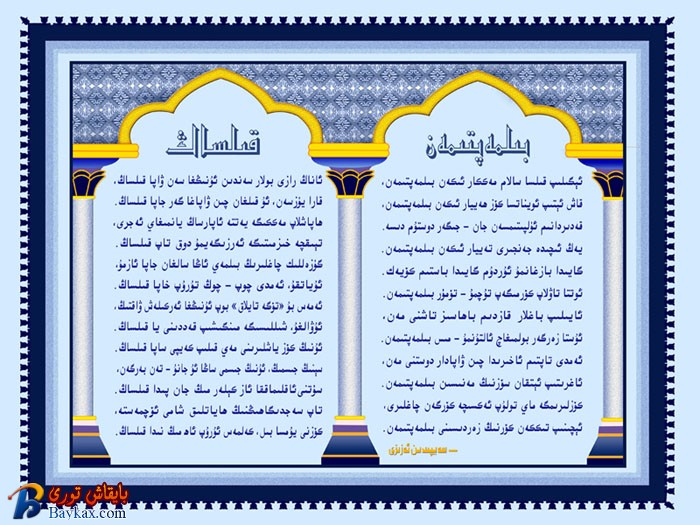 بىلمەپتىمەن
ئېگىلىپ قىلسا سالام مەككار ئىكەن بىلمەپتىمەن،
قاش ئېتىپ ئويناتسا كۆز ھەييار ئىكەن بىلمەپتىمەن.
قەدىردانىم ئۆلپىتىمسەن جان - جىگەر دوستۇم دىسە.
يەڭ ئىچىدە خەنجىرى تەييار ئىكەن بىلمەپتىمەن.
گايىدا بازغانمۇ ئۇردۇم گايىدا باستىم كۆيەك.
ئوتتا تاۋلاپ كۆرمىگەپ تۇچمۇ - تۆمۈر بىلمەپتىمەن.
ئايلىپ باغلار قازدىم باھاسىز تاشنى مەن،
ئۇستا زەرگەر بولمىغاچ ئالتۇنمۇ - مىس بىلمەپتىمەن.
ئەمدى تاپتىم ئاخىرىدا چىن ۋاپادار دوستنى مەن،
ئاغرىتىپ ئېتقان سۆزنىڭ مەنىسىن بىلمەپتىمەن.
كۆزلىرىمگە ماي تولۇپ ئەكسىچە كۆرگەن چاغلىرى،
ئىچىنىپ تىككەن كۆرنىڭ زەردىسىنى بىلمەپتىمەن.
قىلساڭ
ئاناڭ رازى بولار سەندىن ئۇنىڭغا سەن ۋاپا قىلساڭ،
قارا يۈزسەن، ئۇ قىلغان چىن ۋاپاغا گەر جاپا قىلساڭ.
ھاپاشلاپ مەككىگە يەتتە ئاپارساڭ يانمىغاي ئەجرى،
تېىقچە خىزمىتىگە ئەرزىگەيمۇ دوق تاپ قىلساڭ.
گۈزەللىك چاغلىرىڭ بىلمەي ئاڭا سالغان جاپا ئازمۇ،
ئۇياتقۇ، ئەمدى چوپ - چوڭ تۇرۇپ خاپا قىلساڭ.
ئەمەس بۇ «تۆگە تايلاق» بوپ ئۇنىڭغا ئەركىلەش ۋاقتىڭ،
ئۇۋالغۇ، شىللىسىگە مىنگىشىپ قەددىنى يا قىلساڭ.
ئۇنىڭ كۆز ياشلىرىنى مەي قىلىپ كەيپى ساپا قىلساڭ.
سېنىڭ جىسمىڭ، ئۇنىڭ جىسمى ساڭا ئۇ جانۇ - تەن بەرگەن،
سۈتىنى ئاقلىماققا ئاز كېلەر مىڭ جان پىدا قىلساڭ.
تاپ سەجدىگاھىڭنىڭ ھاياتلىق شامى ئۆچمەستە،
كۆزنى يۇمسا بىل، كەلمەس ئۇرۇپ ئاھ مىڭ نىدا قىلساڭ.
بايقاش تورى
Baykax.com